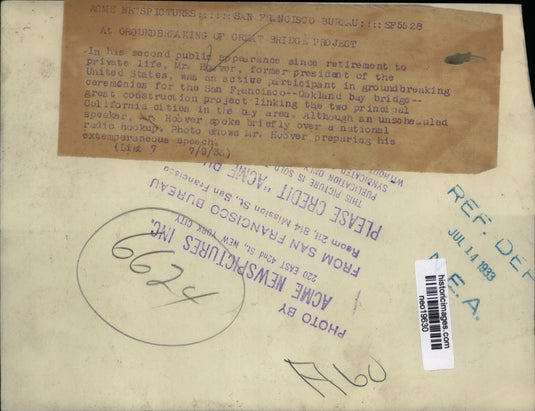 ACME NEWSPICTURES::::::SAN FRANCISCO BUREAU::::SF5528
At GROUNDBREAKING OF GREAT BRIDGE PROJECT
In his second public appearance since retirement to
private life, Mr. Hoover, former president of the
United States, was an active participant in groundbreaking
ceremonies for the San Francisco--Oakland bay bridge--
great construction project linking the two principal
California cities in the bay area. Although an unscheduled
speaker, Mr. Hoover spoke briefly over a national
radio hookup. Photo shows Mr. Hoover preparing his
extemporaneous speech.
(List 7 7/9/33)
THIS PICTURE IS SOLD
PUBLICATION ONLY
SYNDICATED
WITHOUT
PLEASE CREDIT "ACME
Room 211, 814 Mission St., San Francisco
FROM SAN FRANCISCO BUREAU
220 EAST 42nd St., NEW YORK CITY
ACME NEWSPICTURES INC.
PHOTO BY
6624
REF. DEP
JUL 14 1933
N.E.A.
historicimages.com
neo19630
A60